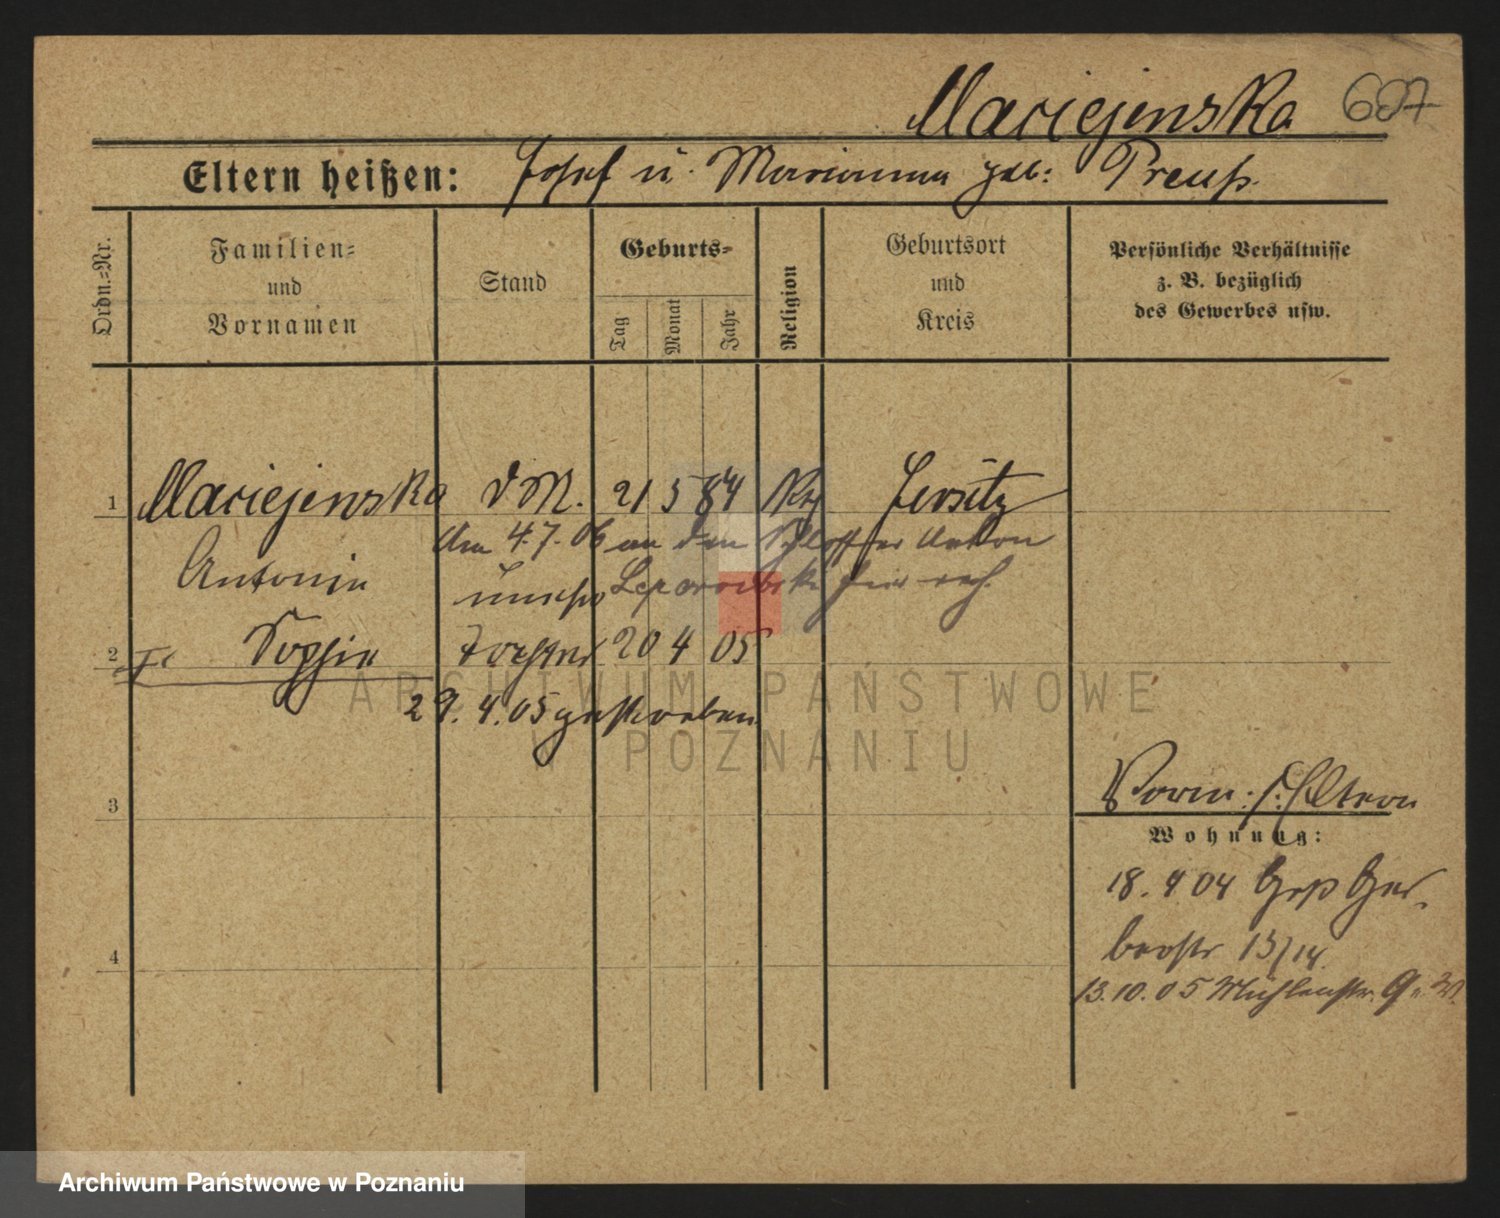 Maciejewska 607
Eltern heißen: Josef u. Marianna geb: Preuß.
Ordn.-Nr.
Familien- und Vornamen
Stand
Geburts-
Tag
Monat
Jahr
Religion
Geburtsort und Kreis
Persönliche Verhältnisse
z. B. bezüglich
des Gewerbes usw.
1 Maciejewska d M. 21 5 84 Kth Jersitz
Am 4.7.06 an den Schlosser Anton
Antonie
hier verh.
2 Sophie Tochter 20 4 05
29. 4. 05 gestorben
ARCHIWUM PAŃSTWOWE
W POZNANIU
3
Vorm: s. Eltern
Wohnung:
18. 4 04 Groß Ger-
berstr 13/14.
4
13. 10. 05 Mühlenstr. 9
Archiwum Państwowe w Poznaniu